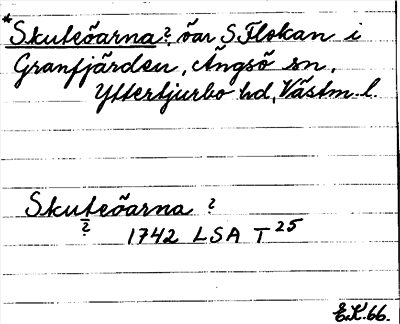 *Skuteöarna?, öar S Flokan i
Granfjärden, Ängsö sn,
Yttertjurbo hd, Västm. l.
Skuteöarna ?
?
1742 LSA T 25
E.K. 66.